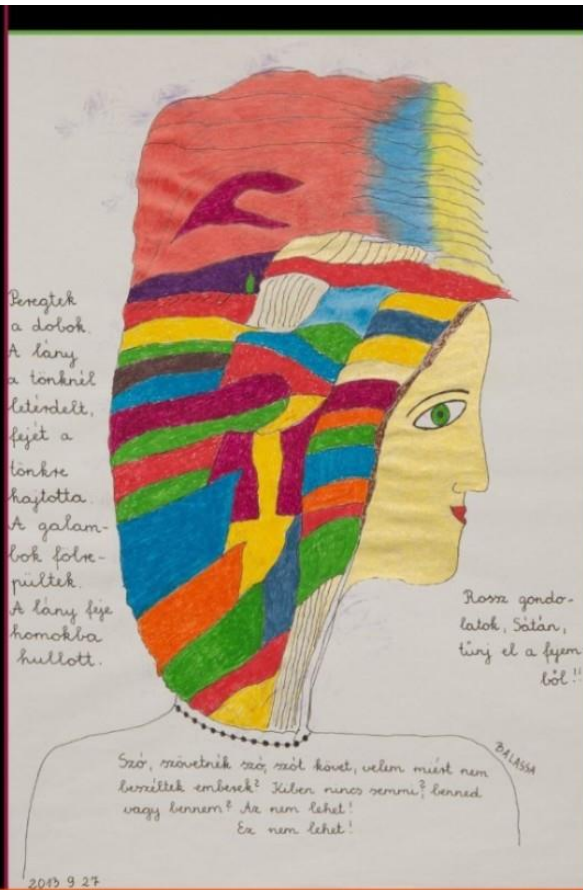 Peregtek
a dobok.
A lány
a tönknél
letérdelt,
fejét a
tönkre
hajtotta.
A galam-
bok fölre-
pültek.
A lány feje
homokba
hullott.
Rossz gondo-
latok, Sátán,
tűnj el a fejem
ből!!
BALASSA
Szó, szövetnék szó, szót követ, velem miért nem
beszéltek emberek? Kiben nincs semmi? benned
vagy bennem? Az nem lehet!
Ez nem lehet!
2013 9 27